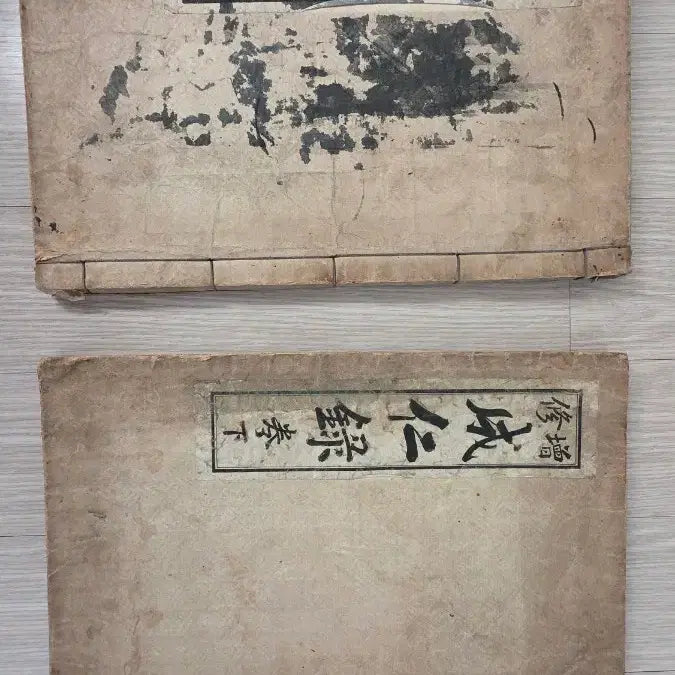 增修 成仁錄 卷下